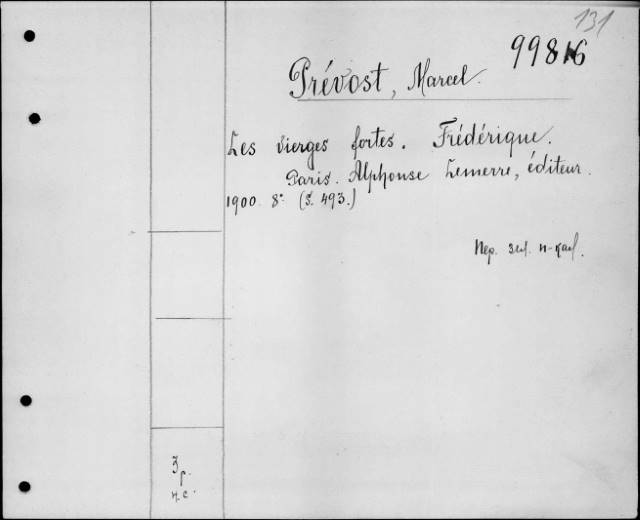 131
99816
Prévost, Marcel.
Les vierges fortes. Frédérique.
Paris. Alphonse Lemerre, éditeur.
1900. 8° (S. 493.)
Nep.
3p.